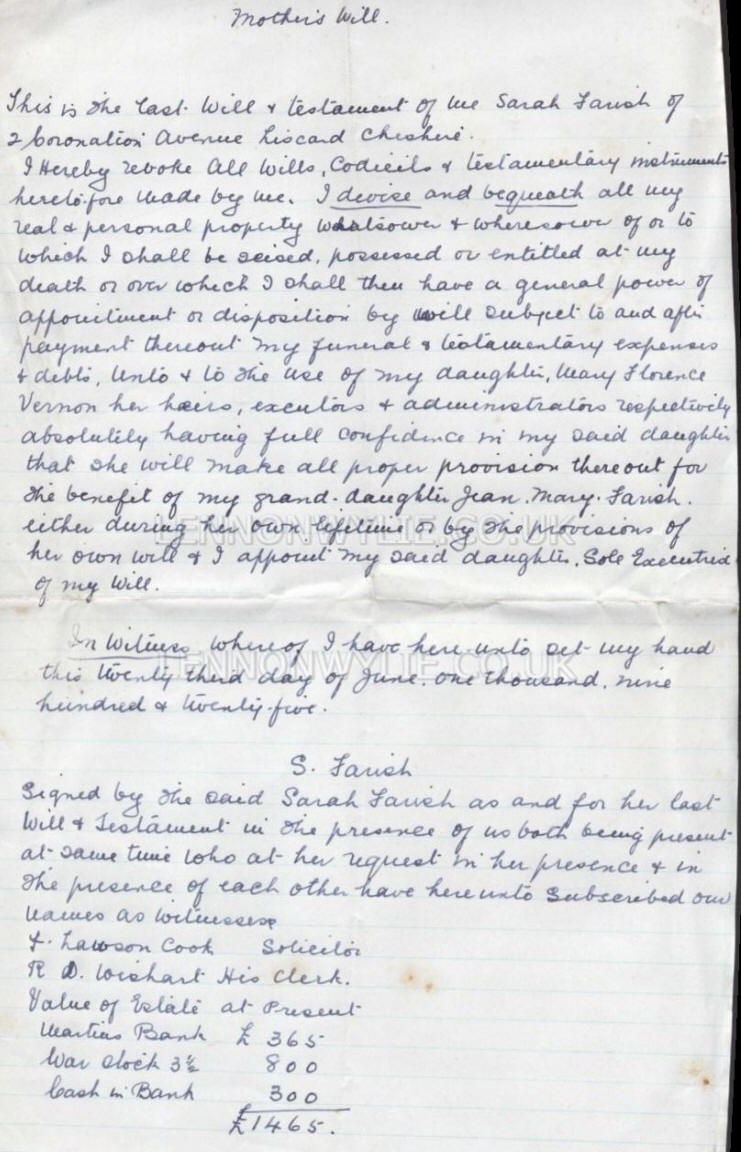 Mother's Will.
This is the last Will & testament of me Sarah Farish of
2 Coronation Avenue Liscard Cheshire.
I Hereby revoke All Wills, Codicils & testamentary instruments
heretofore made by me. I devise and bequeath all my
real & personal property whatsoever & wheresoever of or to
which I shall be seised, possessed or entitled at my
death or over which I shall then have a general power of
appointment or disposition by will subject to and after
payment thereout my funeral & testamentary expenses
& debts, Unto & to the use of my daughter, Mary Florence
Vernon her heirs, executors & administrators respectively
absolutely having full confidence in my said daughter
that she will make all proper provision thereout for
the benefit of my grand-daughter Jean. Mary. Farish.
either during her own lifetime or by the provisions of
her own will & I appoint my said daughter. Sole Executrix
of my Will.
In Witness whereof I have here unto set my hand
this twenty third day of June. one thousand. nine
hundred & twenty-five.
S. Farish
Signed by the said Sarah Farish as and for her last
Will & Testament in the presence of us both being present
at same time who at her request in her presence & in
the presence of each other have here unto Subscribed our
names as witnesses
F. Lawson Cook Solicitor
R D. Wishart His Clerk.
Value of Estate at Present
Martins Bank £ 365
War Stock 3½ 800
Cash in Bank 300
£1465.
LENNONWYLIE.CO.UK
LENNONWYLIE.CO.UK